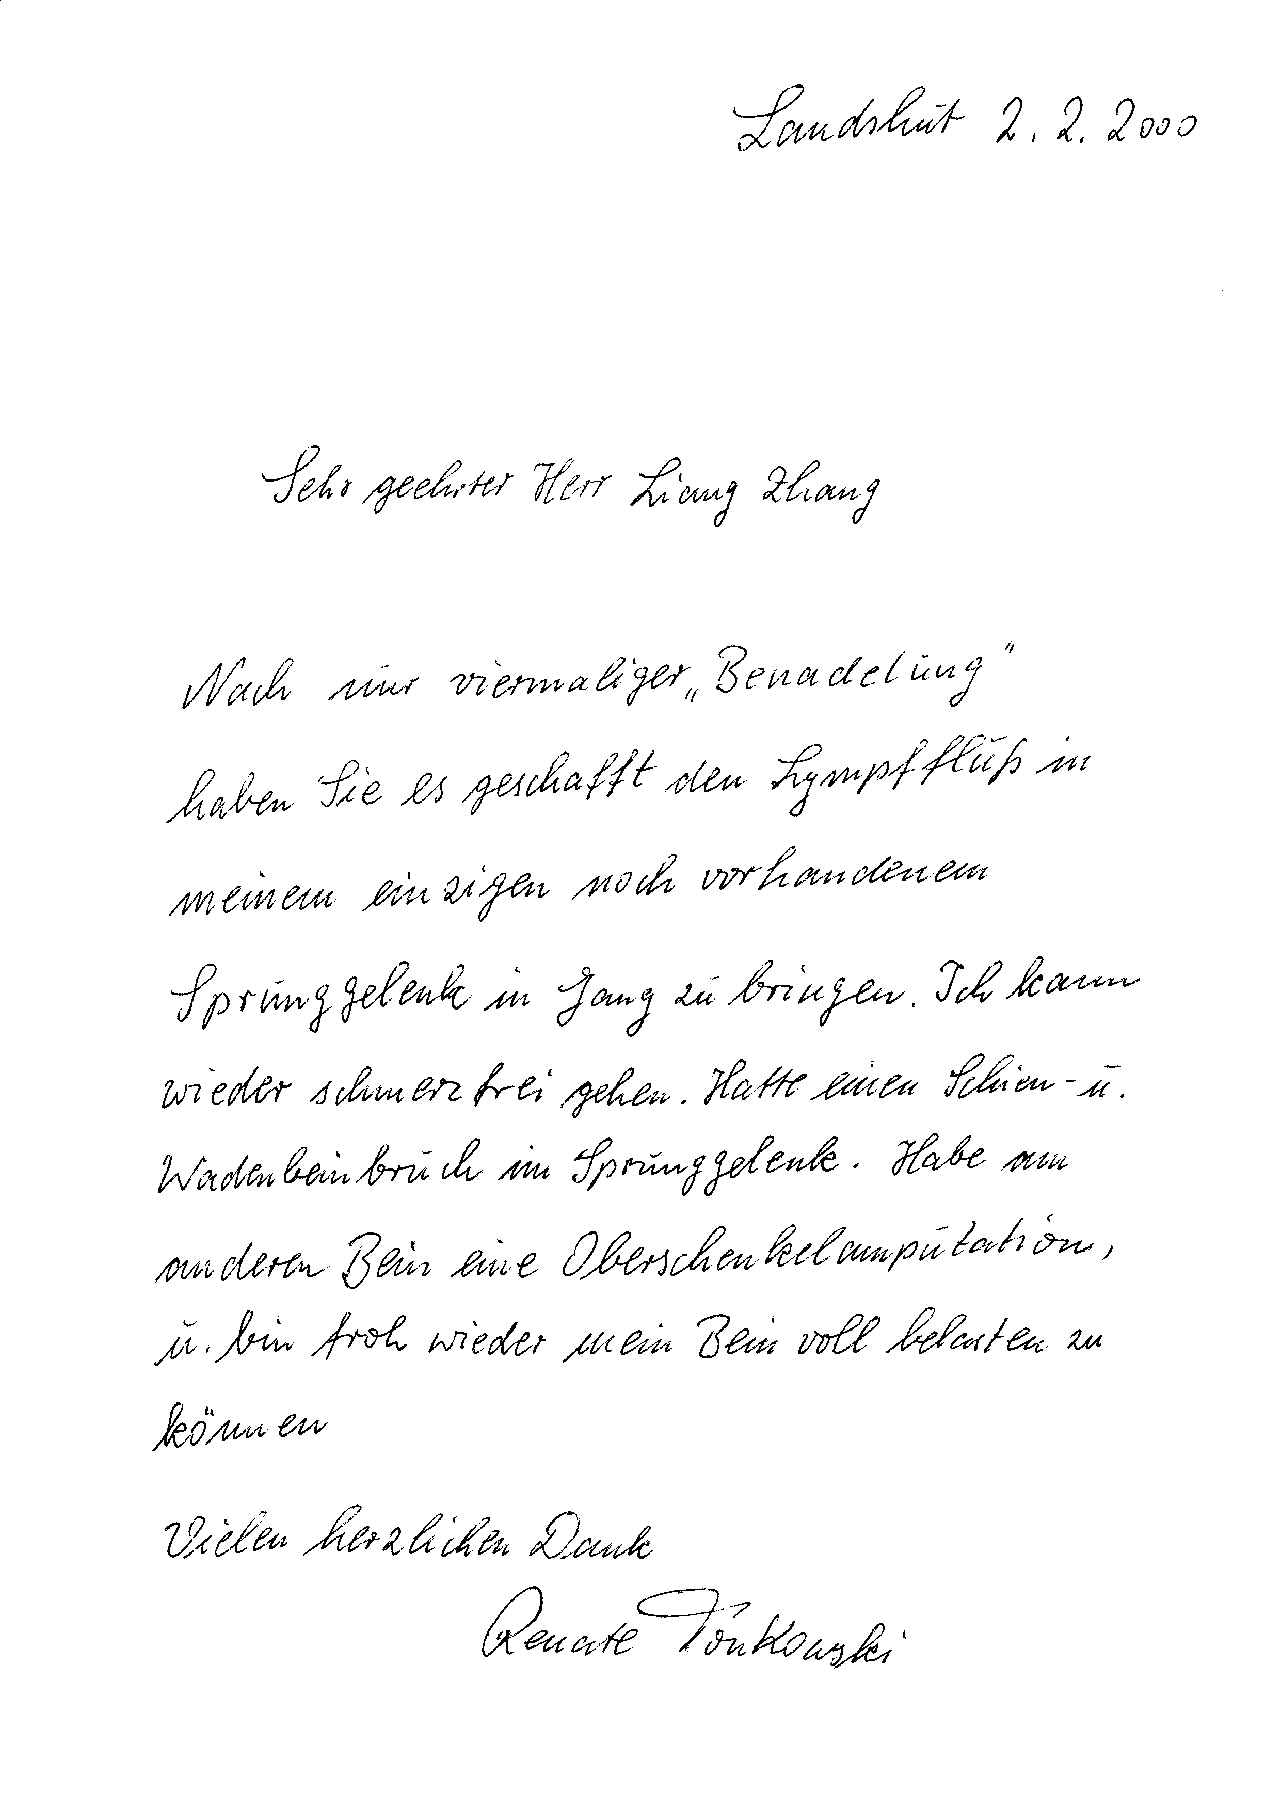 Landshut 2. 2. 2000
Sehr geehrter Herr Liang Zhang
Nach nur viermaliger „Benadelung"
haben Sie es geschafft den Lympffluß in
meinem einzigen noch vorhandenem
Sprunggelenk in Gang zu bringen. Ich kann
wieder schmerzfrei gehen. Hatte einen Schien- u.
Wadenbeinbruch im Sprunggelenk. Habe am
anderen Bein eine Oberschenkelamputation,
u. bin froh wieder mein Bein voll belasten zu
können
Vielen herzlichen Dank
Renate